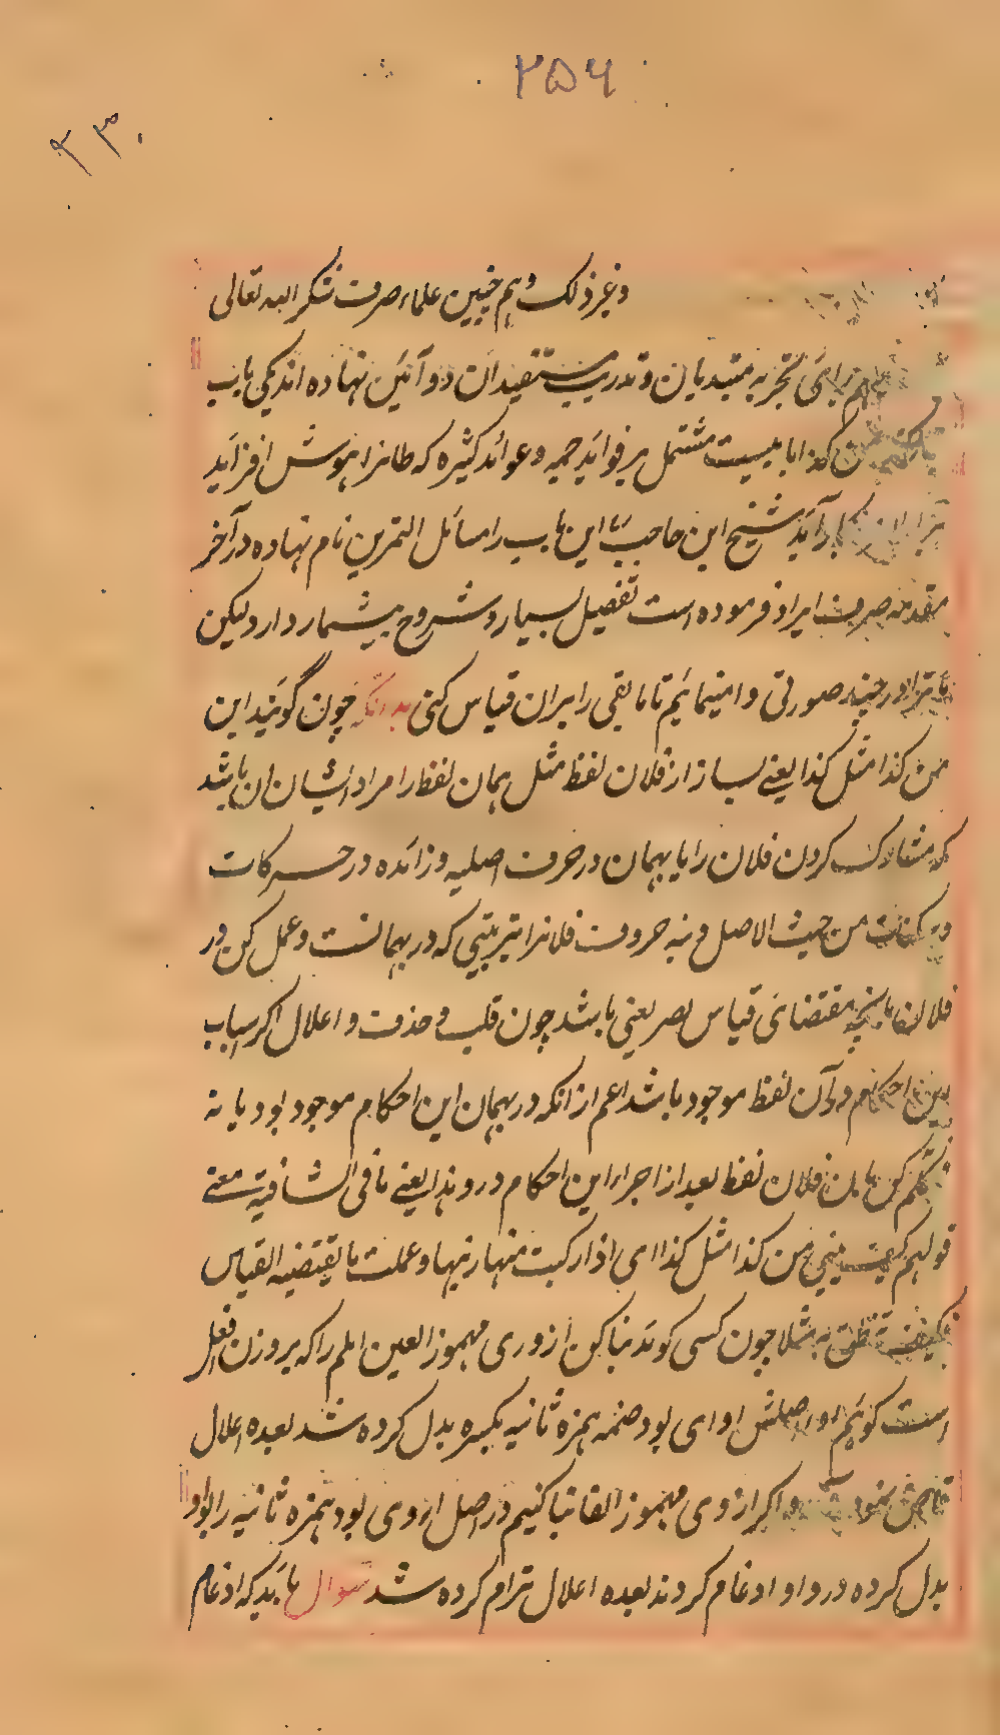 ۲۵۶
۲۳۰
وغیر ذلک وهم چنین علماء صرف شکر الله تعالی
برای تجربه مبتدیان و تدریب مستفیدان دو آئین نهاده اند یکی باب
کذا بابیست مشتمل بر فواید جمه و عوائد کثیره که طالبرا هوش افزاید
کار آید شیخ ابن حاجب این باب را مسائل التمرین نام نهاده در آخر
مقدمه صرف ایراد فرموده است تفصیل بسیار و شروح بیشمار دارد لیکن
در چند صورتی وا مینمائیم تا ما بقی را بران قیاس کنی بدانکه چون گویند ابن
من کذا مثل کذا یعنی بساز از فلان لفظ مثل بهمان لفظ را مراد ایشان ان باشد
که مشارک کردن فلان را با بهمان در حرف اصلیه و زائده در حرکات
و سکنات من حیث الاصل و بنه حروف فلانرا بترتیبی که در بهمانست و عمل کن در
فلان مقتضای قیاس صرفی باشد چون قلب و حذف و اعلال اگر اسباب
این احکام در آن لفظ موجود باشد اعم از انکه در بهمان این احکام موجود بود یا نه
تکلم کن بان فلان لفظ بعد از اجرا این احکام در و لهذا یعنی ما فی الشافیة معنی
قولهم کیف تبنی من کذا مثل کذا ای اذا رکبت منها زنتها و عملت ما یقتضیه القیاس
فکیف تنطق به مثلا چون کسی گوید بنا کن از وری مهموز العین ابلم را که بر وزن افعل
است گوئیم اصلش اوای بود ضمه همزه ثانیه بکسره بدل کرده شد بعده اعلال
قاض نمود اگر از وی مهموز الفا بنا کنیم در اصل ااوی بود همزه ثانیه را بواو
بدل کرده در واو ادغام کردند بعده اعلال ترام کرده شد سوال باید که ادغام